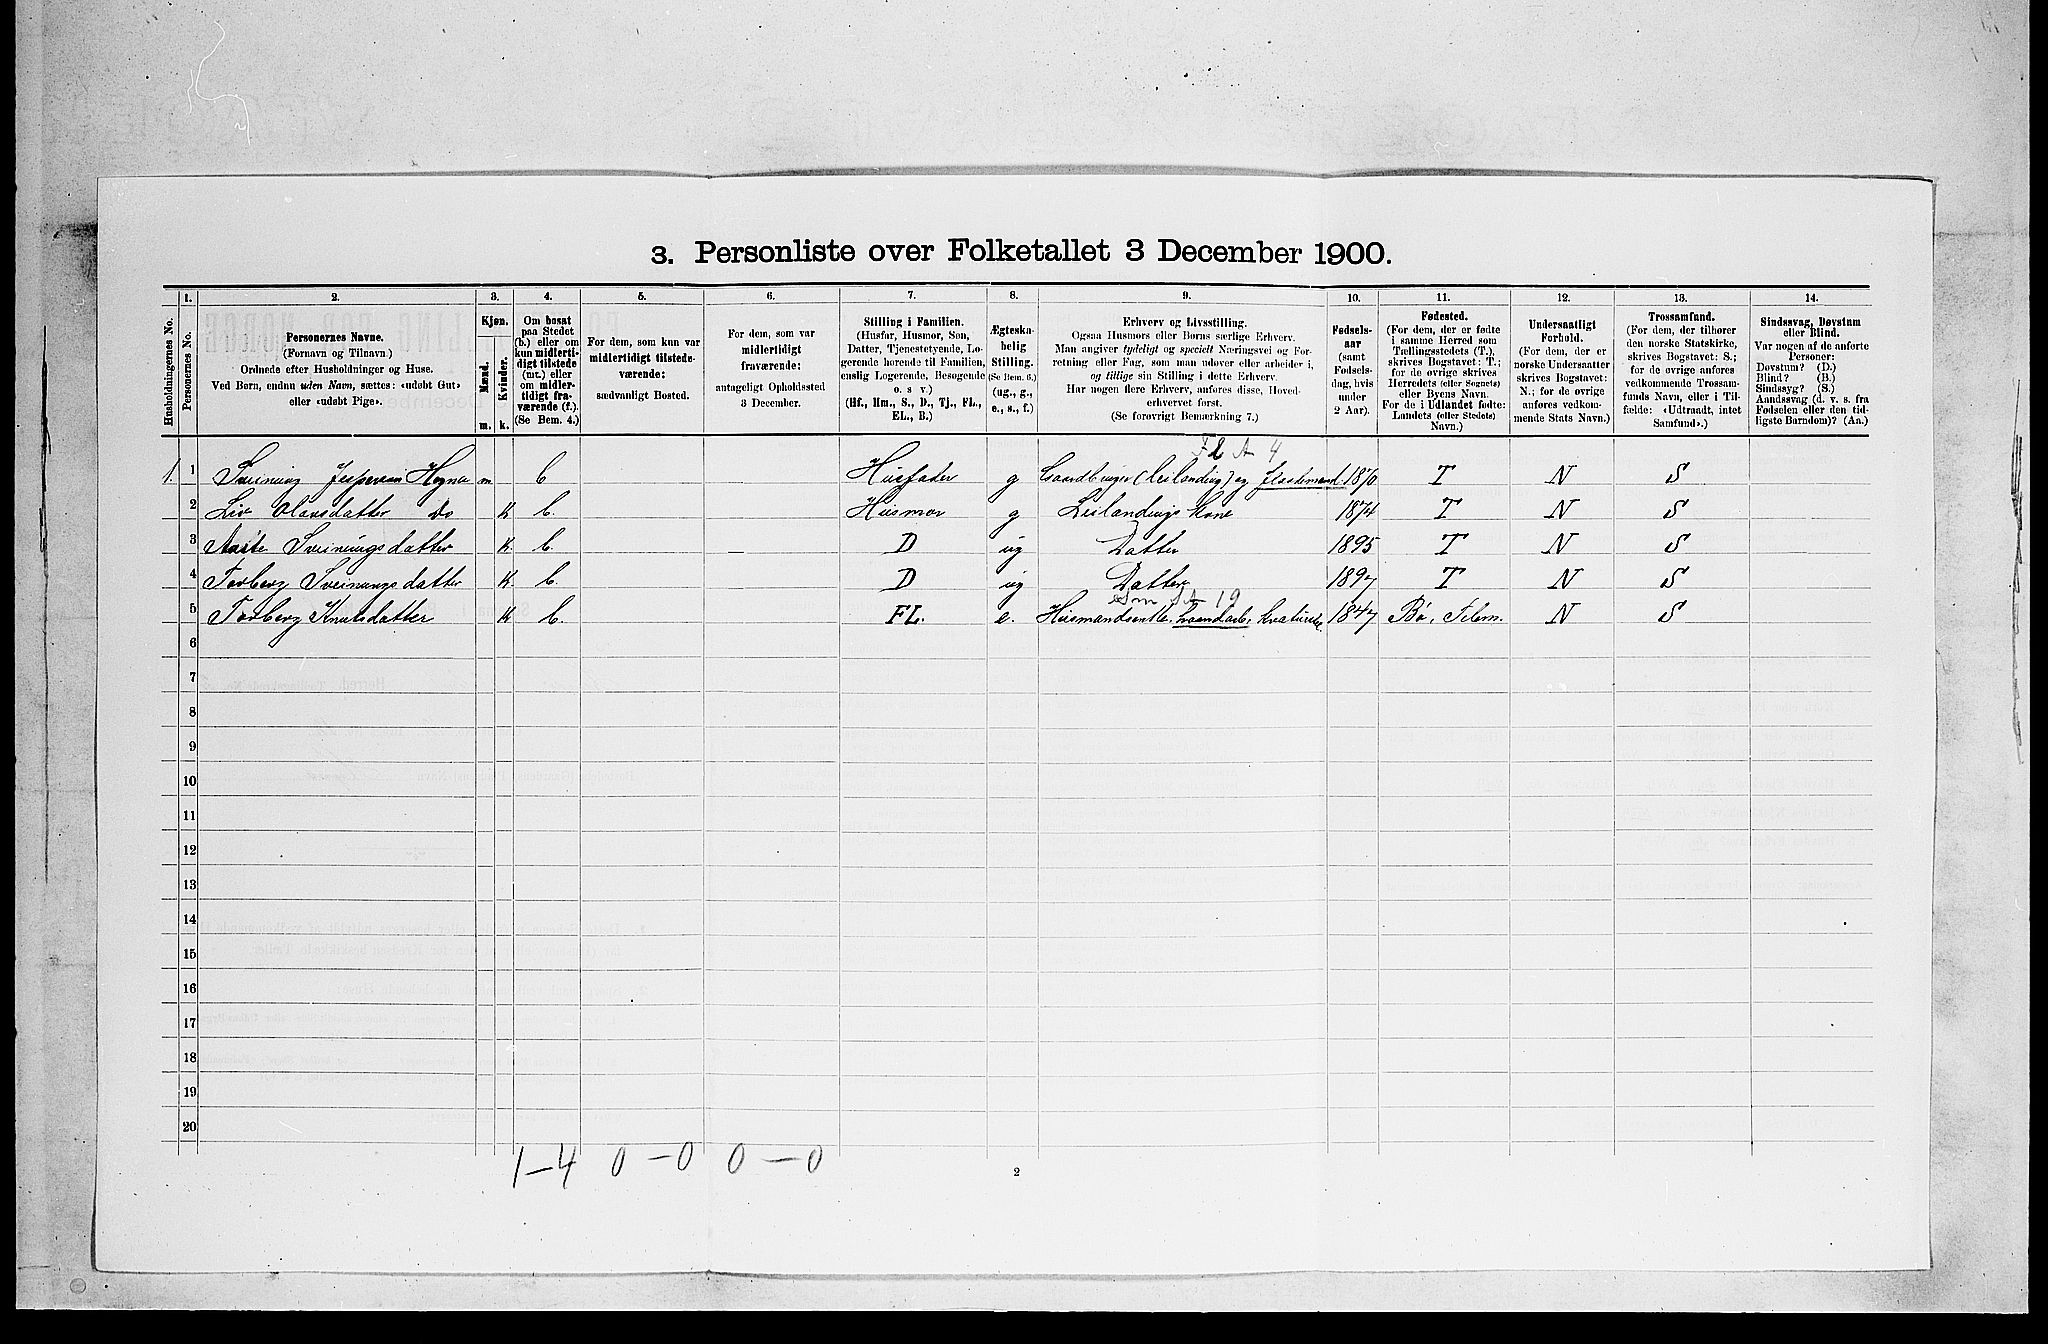 3. Personliste over Folketallet 3 December 1900.
1. 2. 3. 4. 5. 6. 7. 8. 9. 10. 11. 12. 13. 14.
Husholdningernes No.
Personernes No.
Personernes Navne.
(Fornavn og Tilnavn.)
Ordnede efter Husholdninger og Huse.
Ved Børn, endnu uden Navn, sættes: «udøbt Gut»
eller «udøbt Pige».
Kjøn.
Mænd.
Kvinder.
m. k.
Om bosat
paa Stedet
(b.) eller om
kun midlerti-
digt tilstede
(mt.) eller
om midler-
tidigt fra-
værende (f.).
(Se Bem. 4.)
For dem, som kun var
midlertidigt tilstede-
værende:
sædvanligt Bosted.
For dem, som var
midlertidigt
fraværende:
antageligt Opholdssted
3 December.
Stilling i Familien.
(Husfar, Husmor, Søn,
Datter, Tjenestetyende, Lo-
gerende hørende til Familien,
enslig Logerende, Besøgende
o. s. v.)
(Hf., Hm., S., D., Tj., FL.,
EL., B.)
Ægteska-
belig
Stilling.
(Se Bem. 6.)
(ug., g.,
e., s., f.)
Erhverv og Livsstilling.
Ogsaa Husmors eller Børns særlige Erhverv.
Man angiver tydeligt og specielt Næringsvei og For-
retning eller Fag, som man udøver eller arbeider i,
og tillige sin Stilling i dette Erhverv.
Har nogen flere Erhverv, anføres disse, Hoved-
erhvervet først.
(Se forøvrigt Bemærkning 7.)
Fødsels-
aar
(samt
Fødsels-
dag, hvis
under
2 Aar).
Fødested.
(For dem, der er fødte
i samme Herred som
Tællingsstedets (T.),
skrives Bogstavet: T.;
for de øvrige skrives
Herredets (eller Sognets)
eller Byens Navn.
For de i Udlandet fødte:
Landets (eller Stedets)
Navn.)
Undersaatligt
Forhold.
(For dem, der er
norske Undersaatter
skrives Bogstavet:
N.; for de øvrige
anføres vedkom-
mende Stats Navn.)
Trossamfund.
(For dem, der tilhører
den norske Statskirke,
skrives Bogstavet: S.;
for de øvrige anføres
vedkommende Trossam-
funds Navn, eller i Til-
fælde: «Udtraadt, intet
Samfund».)
Sindssvag, Døvstum
eller Blind.
Var nogen af de anførte
Personer:
Døvstum? (D.)
Blind? (B.)
Sindssyg? (S.)
Aandssvag (d. v. s. fra
Fødselen eller den tid-
ligste Barndom)? (Aa.)
1. 1 Sveinung Jespersen Hogna m b Husfader g Gaardbruger (leilænding) og 1870 T N S
2 Liv Olavsdatter Do K b. Husmor g Leilændings Kone 1874 T N S
3 Aaste Sveinungsdatter K. b. D ug Datter 1895 T N S
4 Torberg Sveinungsdatter K b. D ug Datter 1897 T N S
19
5 Torberg Knutsdatter K b. FL. e. 1847 Bø, Telem. N S
6
7
8
9
10
11
12
13
14
15
16
17
18
19
20
1-4 0-0 0-0
2